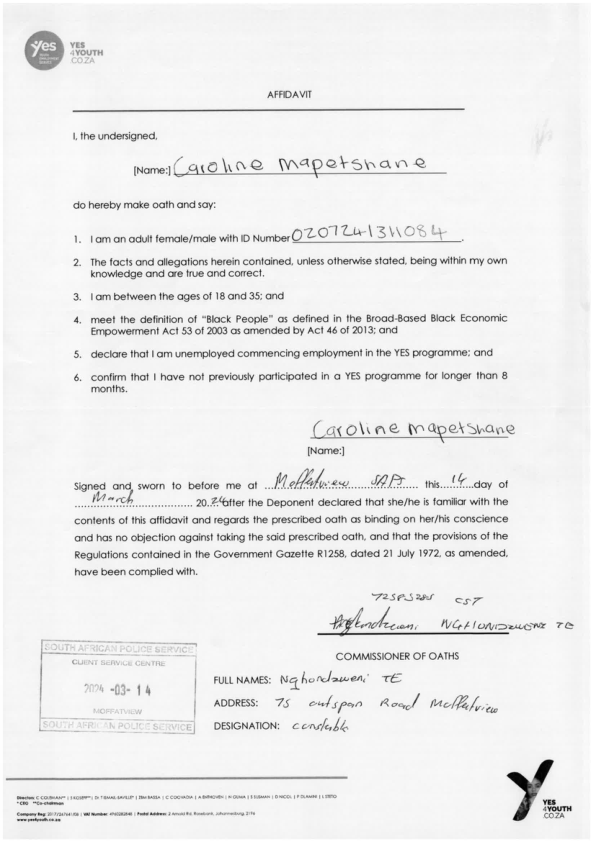 yes
YES
4YOUTH
.CO.ZA
AFFIDAVIT
I, the undersigned,
[Name:] Caroline Mapetshane
do hereby make oath and say:
1. I am an adult female/male with ID Number 0207241311084.
2. The facts and allegations herein contained, unless otherwise stated, being within my own
knowledge and are true and correct.
3. I am between the ages of 18 and 35; and
4. meet the definition of “Black People” as defined in the Broad-Based Black Economic
Empowerment Act 53 of 2003 as amended by Act 46 of 2013; and
5. declare that I am unemployed commencing employment in the YES programme; and
6. confirm that I have not previously participated in a YES programme for longer than 8
months.
Caroline Mapetshane
[Name:]
Signed and sworn to before me at Moffatview SAPS this 14 day of
March 20.24 after the Deponent declared that she/he is familiar with the
contents of this affidavit and regards the prescribed oath as binding on her/his conscience
and has no objection against taking the said prescribed oath, and that the provisions of the
Regulations contained in the Government Gazette R1258, dated 21 July 1972, as amended,
have been complied with.
CST
COMMISSIONER OF OATHS
SOUTH AFRICAN POLICE SERVICE
CLIENT SERVICE CENTRE
2024 -03- 14
MOFFATVIEW
SOUTH AFRICAN POLICE SERVICE
FULL NAMES: Nghondzweni TE
ADDRESS: 75 outspan Road Moffatview
DESIGNATION: constable
* CEO **Co-chairman
Postal Address: 2 Arnold Rd, Rosebank, Johannesburg, 2196
www.yes4youth.co.za
YES
4YOUTH
.CO.ZA